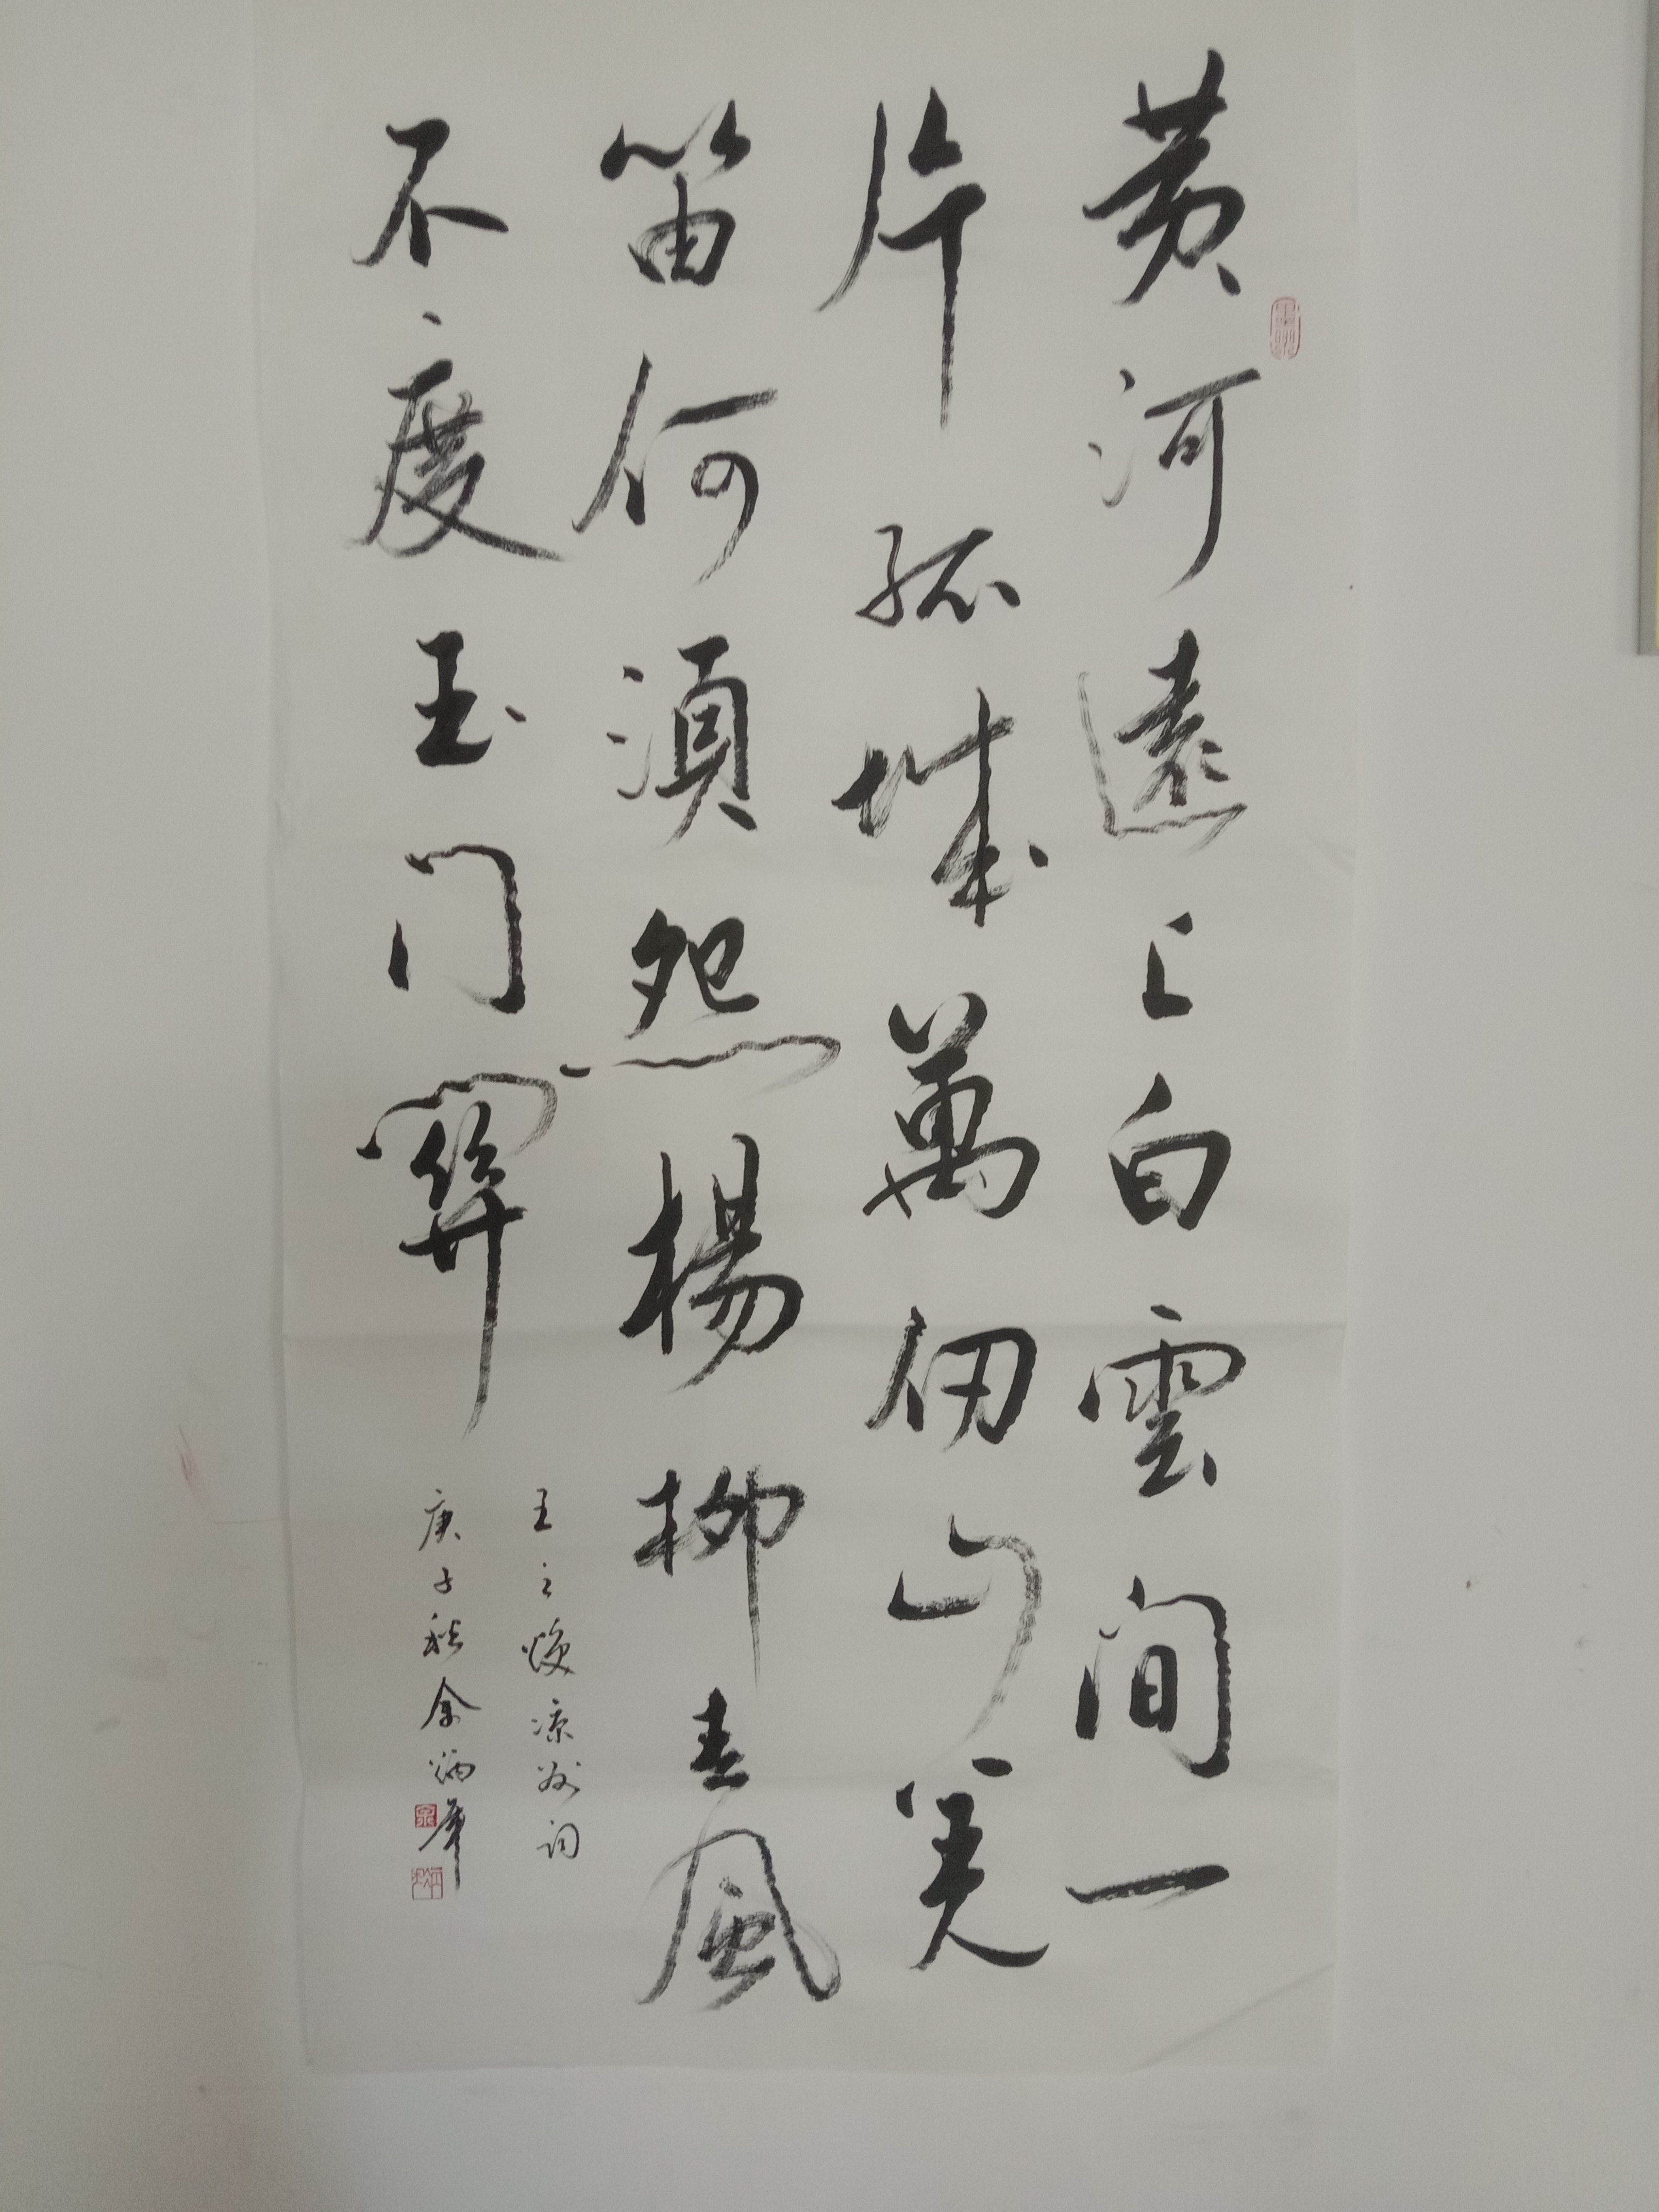 黄河遠上白雲间一
片孤城萬仞山羌
笛何須怨楊柳春風
不度玉门關
王之煥凉州词
庚子秋余炳犀